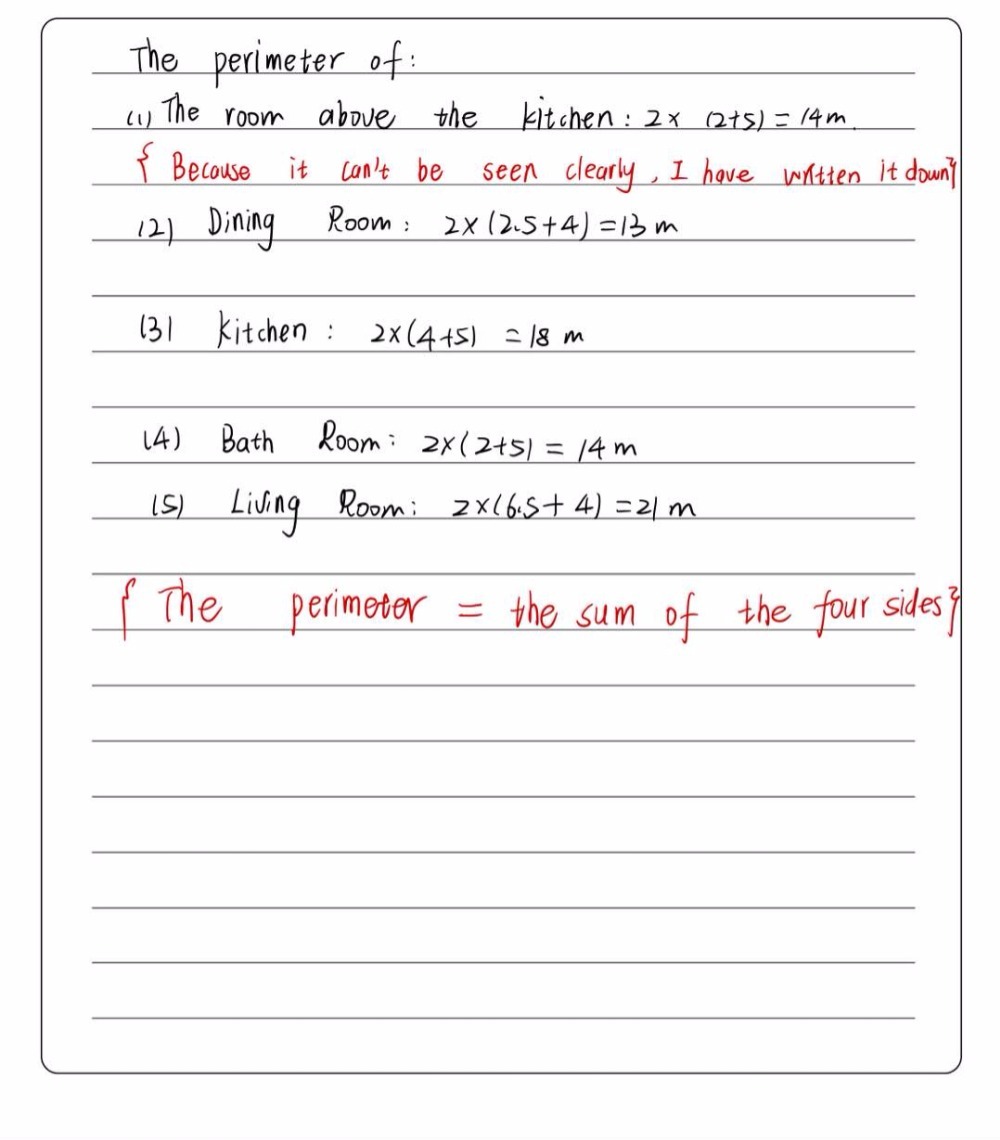 The perimeter of:
(1) The room above the kitchen: 2x (2+5) = 14m.
{ Because it can't be seen clearly, I have written it down}
(2) Dining Room: 2x(2.5+4) = 13 m
(3) kitchen: 2x(4+5) = 18 m
(4) Bath Room: 2x(2+5) = 14 m
(5) Living Room: 2x(6.5+ 4) = 21 m
{ The perimeter = the sum of the four sides}